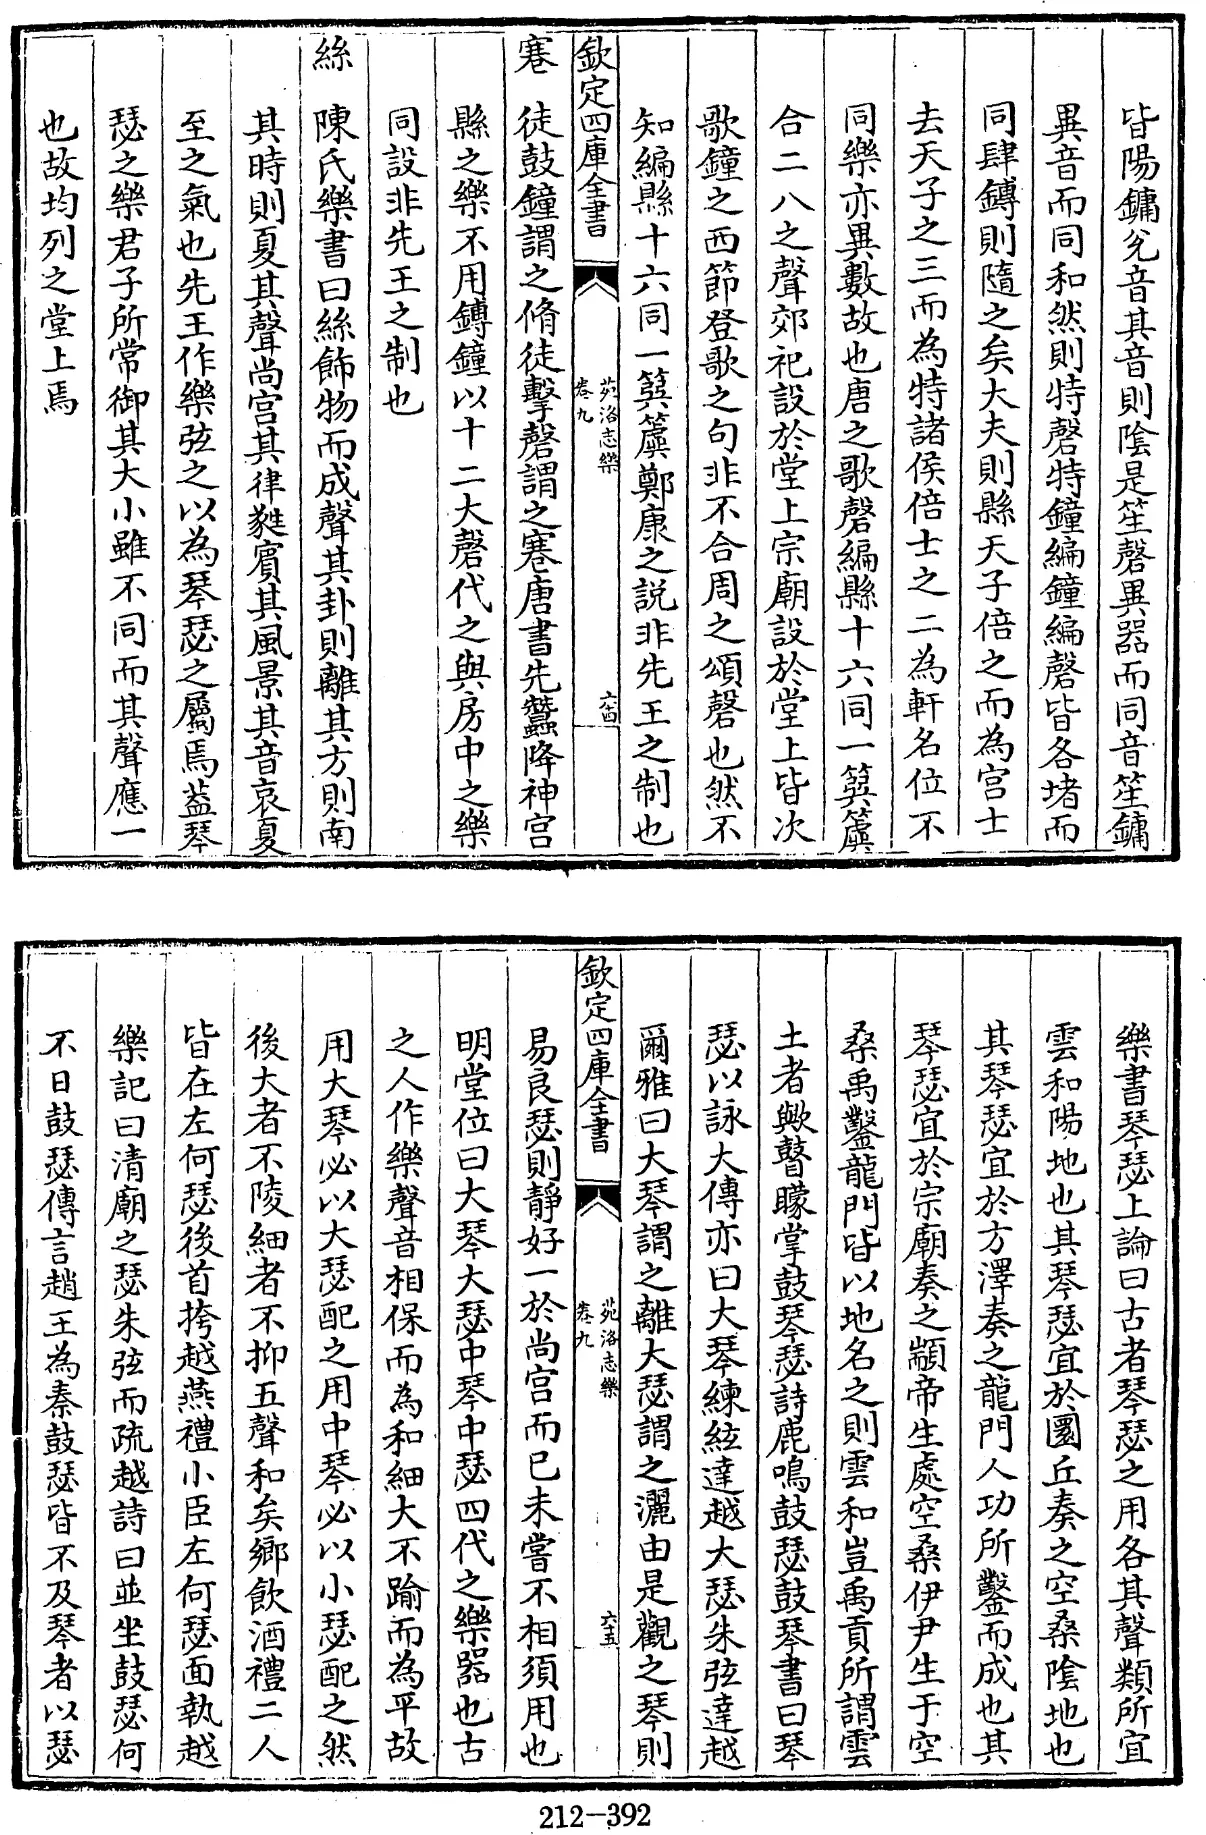 皆陽鏞兊音其音則隂是笙磬異器而同音笙鏞
異音而同和然則特磬特鐘編鐘編磬皆各堵而
同肆鏄則隨之矣大夫則縣天子倍之而為宫士
去天子之三而為特諸侯倍士之二為軒名位不
同樂亦異數故也唐之歌磬編縣十六同一簨簴
合二八之聲郊祀設於堂上宗廟設於堂上皆次
歌鐘之西節登歌之句非不合周之頌磬也然不
知編縣十六同一簨簴鄭康之説非先王之制也
欽定四庫全書
苑洛志樂
卷九
六四
寋 徒鼓鐘謂之脩徒擊磬謂之寋唐書先蠶降神宫
縣之樂不用鏄鐘以十二大磬代之與房中之樂
同設非先王之制也
絲 陳氏樂書曰絲飾物而成聲其卦則離其方則南
其時則夏其聲尚宫其律蕤賓其風景其音哀夏
至之氣也先王作樂弦之以為琴瑟之屬焉葢琴
瑟之樂君子所常御其大小雖不同而其聲應一
也故均列之堂上焉
樂書琴瑟上論曰古者琴瑟之用各其聲類所宜
雲和陽地也其琴瑟宜於圜丘奏之空桑隂地也
其琴瑟宜於方澤奏之龍門人功所鑿而成也其
琴瑟宜於宗廟奏之顓帝生處空桑伊尹生于空
桑禹鑿龍門皆以地名之則雲和豈禹貢所謂雲
土者歟瞽矇掌鼓琴瑟詩鹿鳴鼓瑟鼓琴書曰琴
瑟以詠大傳亦曰大琴練絃達越大瑟朱弦達越
爾雅曰大琴謂之離大瑟謂之灑由是觀之琴則
欽定四庫全書
苑洛志樂
卷九
六五
易良瑟則靜好一於尚宫而已未嘗不相須用也
明堂位曰大琴大瑟中琴中瑟四代之樂器也古
之人作樂聲音相保而為和細大不踰而為平故
用大琴必以大瑟配之用中琴必以小瑟配之然
後大者不陵細者不抑五聲和矣鄉飲酒禮二人
皆在左何瑟後首挎越燕禮小臣左何瑟面執越
樂記曰清廟之瑟朱弦而疏越詩曰並坐鼓瑟何
不日鼓瑟傳言趙王為秦鼓瑟皆不及琴者以瑟
212-392